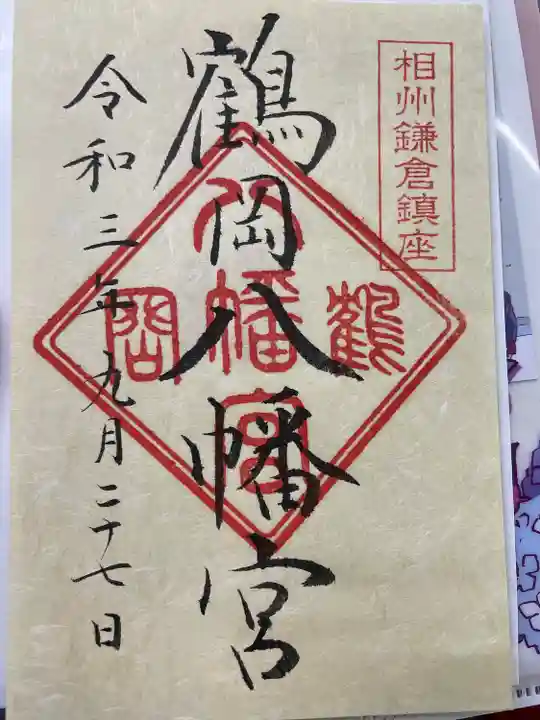 相州鎌倉鎮座
鶴岡八幡宮
鶴
八幡宮
岡
令和三年九月二十七日